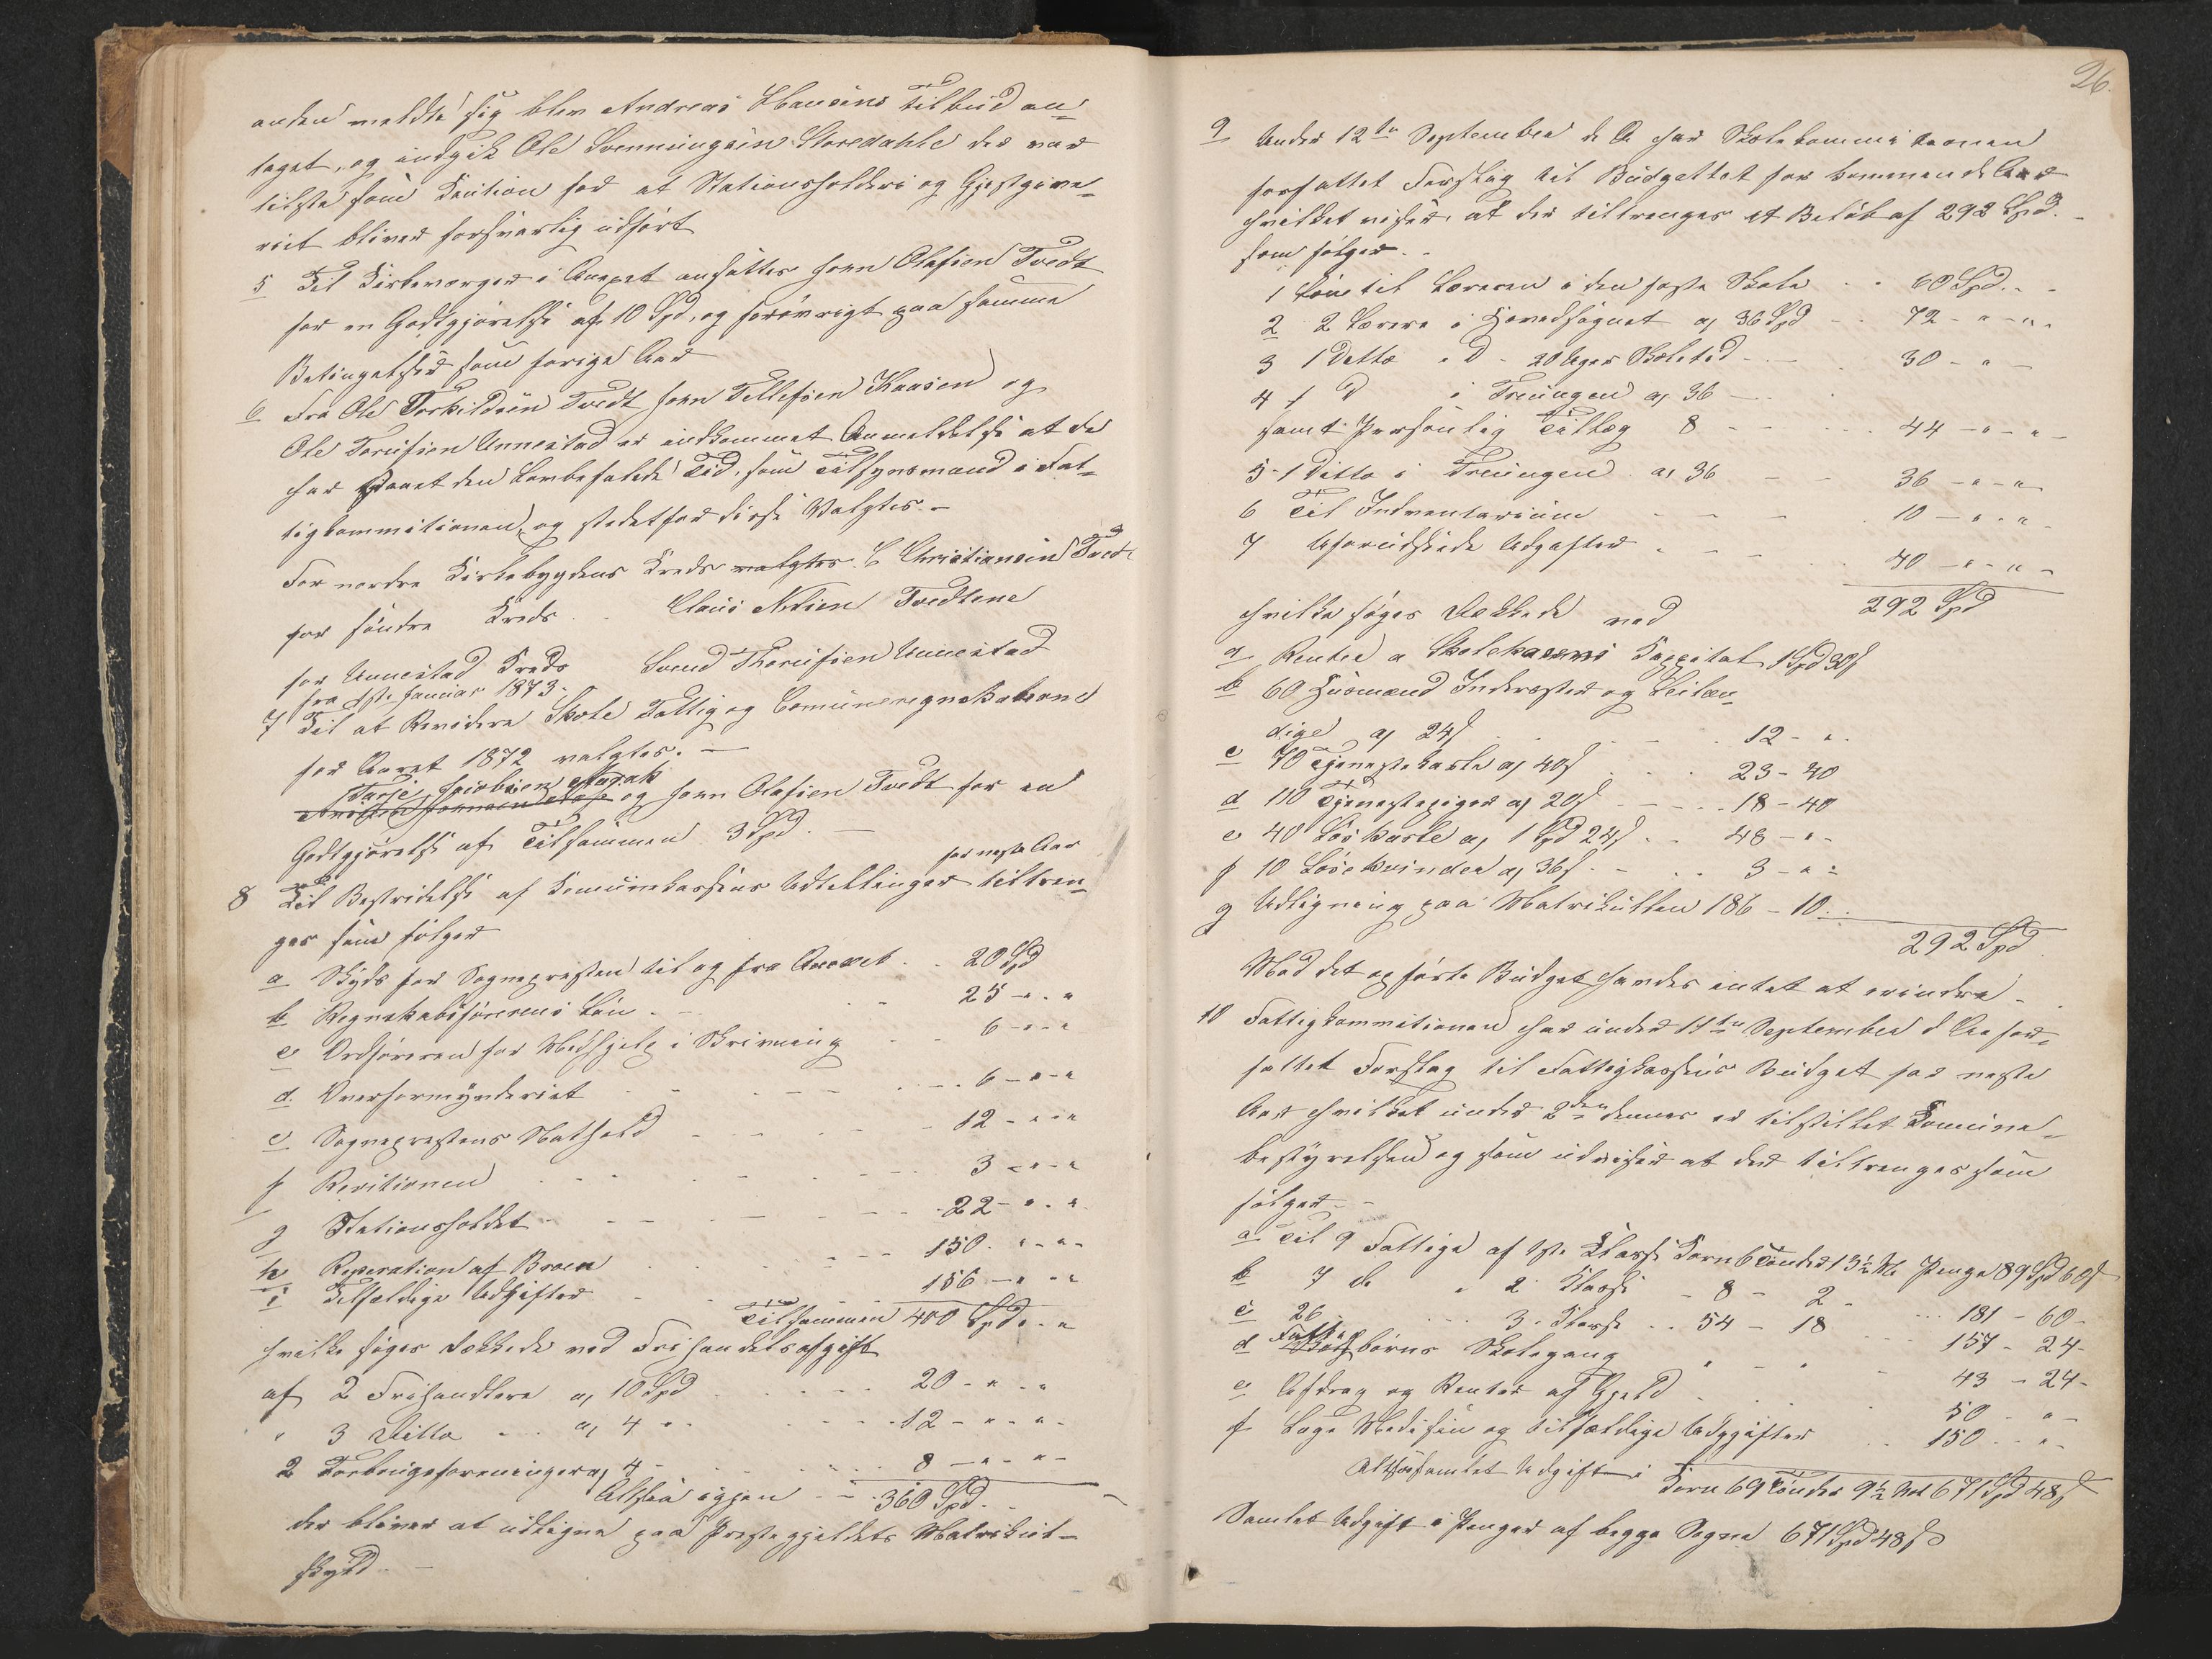 anden meldte sig blev Andreas Hansens Tilbud an-
taget, og indgik Ole Svenningsen Storedahle der var
tilstæ som Kaution for at Stationsholderi og Gjestgive-
riet bliver forsvarlig udført
5 Til Kirkeværger i Anexet ansattes John Olafsen Tvedt
for en Godtgjørelse af 10 Spd, og forøvrigt paa samme
Betingelser som forige Aar
6 Fra Ole Torkildsen Tvedt John Tellefsen Kaasen og
Ole Torufsen Unnestad er indkommet Anmeldelse at de
har staaet den Lovbefalede Tid, som Tilsynsmænd i Fat-
tigkommitionen, og istedetfor disse Valgtes. -
For nordre Kirkebygdens Kreds valgtes C Christiansen Tvedt
for søndre Kreds . Claus Nilsen Tvedtene
for Unnestad Kreds Svend Thorufsen Unnestad
fra 1ste Januar 1873.
7 Til at Revidere Skole Fattig og Comuneregnskaberne
for Aaret 1872 valgtes. -
Tarje Jacobsen
og John Olafsen Tvedt for en
Godtgjørelse af Tilsammen 3 Spd. -
for neste Aar
8 Til Bestridelse af Komunekassens Udtællinger tiltren-
ges som følger
a Skyds for Sognepresten til og fra Anexet . . 20 Spd
b Regnskabsførerens Løn . - 25 - " . "
c Ordføreren for Medhjelp i Skrivning - - 6 - " - "
d. Overformynderiet - - - - 6 - " - "
e Sogneprestens Nathold - - - - 12 - " - "
f Revitionen . . . . . 3 - " - "
g Stationsholdet - - - - - 22 - " . "
h Reperation af Broen . . . - - - 150. " - " -
i Tilfældige Udgifter . - . . 156 - " - "
Tilsammen 400 Spd " . "
hvilke søges dækkede ved Frihandelsafgift
af 2 Frihandlere a, 10 Spd . . . - - 20 - " . "
" 3 Ditto - . . a, 4 " . . - - - 12 - " - " -
2 Forbrugsforeninger a, 4 - . - . . . 8 - " - " -
Altsaa igjen - - 360 Spd. -
der bliver at udligne paa Prestegjeldets Matrikul-
skyld. -
26.
9 Under 12te September d. A. har Skolekommi tionen
forfattet Forslag til Budgettet for kommende Aar
hvilket viser, at der tiltrenges et Beløb af 292 Spd. -
som følger. .
1 Løn til Læreren i den faste Skole . . 60 Spd. . -
2 2 Lærere i Hovedsognet a, 36 Spd - . 72 - " - " .
3 1 Ditto . D - 20 Uger Skoletid - - . 30 - " -
4 1 D i Treungen a, 36 - . .
samt Personlig Tillæg 8 - - . . . 44 - " - " -
5 - 1 Ditto i Treungen a, 36 - - 36 - " - "
6 Til Indventarium - - - . 10 - " . " -
7 Uforudseede Udgifter . - - . . 40 - " - " -
292 Spd
hvilke søges Dækkede ved
a Renter a Skolekassens Kapital 1 Spd 30 s
b 60 Husmænd Inderster og Leilæn-
dige a, 24 s . . . - - . 12 - " .
c 70 Tjenestekarle a, 40 s . . . . 23 - 40
d 110 Tjenestepiger a, 20 s . - - - . 18 - 40
e 40 Løskarle a, 1 Spd 24 s . . 48 - " -
f 10 Løse kvinder a, 36 s . - . . 3 - " -
g Udligning paa Matrikullen 186 - 10. .
292 Spd
Mod det opførte Budget havdes intet at erindre - .
10 Fattigkommitionen har under 11te September d Aar for-
fattet Forslag til Fattigkassens Budget for neste
Aar hvilket under 2den dennes er tilstillet Komune-
bestyrelsen og som udviser at der tiltrenges som
følger. -
a Til 9 Fattige af 1ste Klasse Korn 6 Tønder 13½ Penge 89 Spd 60 s
b 7 do " 2 Klasse - 8 - 2 - . . . 181 - 60 -
c 26 . . . . 3. Klasse . . 54 - 18 . . . 157 - 24 -
d Fattig børns Skolegang " - " - 43 - 24 -
e Afdrag og Renter af Gjeld . . . . 50 - " -
f Læge Medisin og tilfældige Udgifter . . 150 . . " -
Altsaa samlet Udgift i Korn 69 Tønder 9½ 671 Spd 48 s
Samlet Udgift i Penger af begge Sogne 671 Spd 48 s